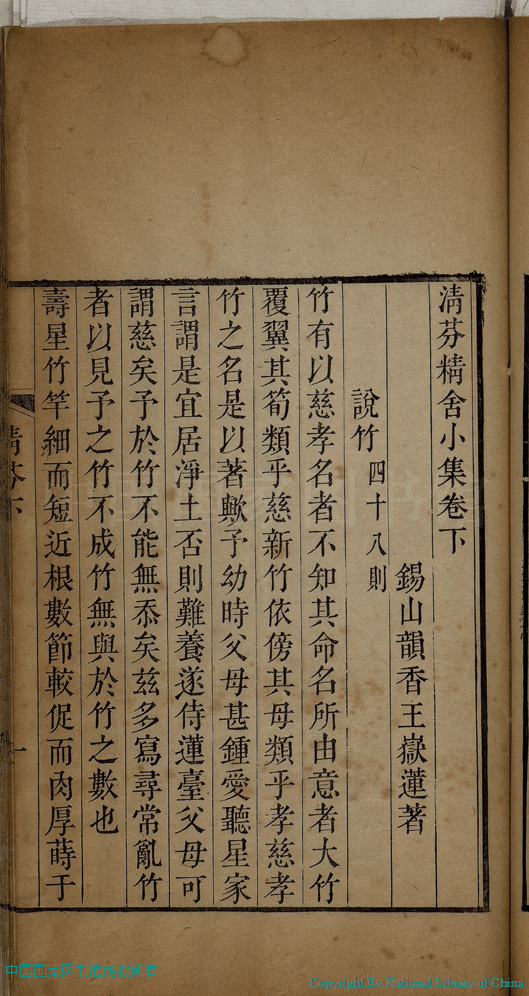 清芬精舍小集卷下
錫山韻香王嶽蓮著
說竹 四十八則
竹有以慈孝名者不知其命名所由意者大竹
覆翼其筍類乎慈新竹依傍其母類乎孝慈孝
竹之名是以著歟予幼時父母甚鍾愛聽星家
言謂是宜居淨土否則難養遂侍蓮臺父母可
謂慈矣予於竹不能無忝矣茲多寫尋常亂竹
者以見予之竹不成竹無與於竹之數也
壽星竹竿細而短近根數節較促而肉厚蒔于
清芬下
一
Copyright By National Library of China